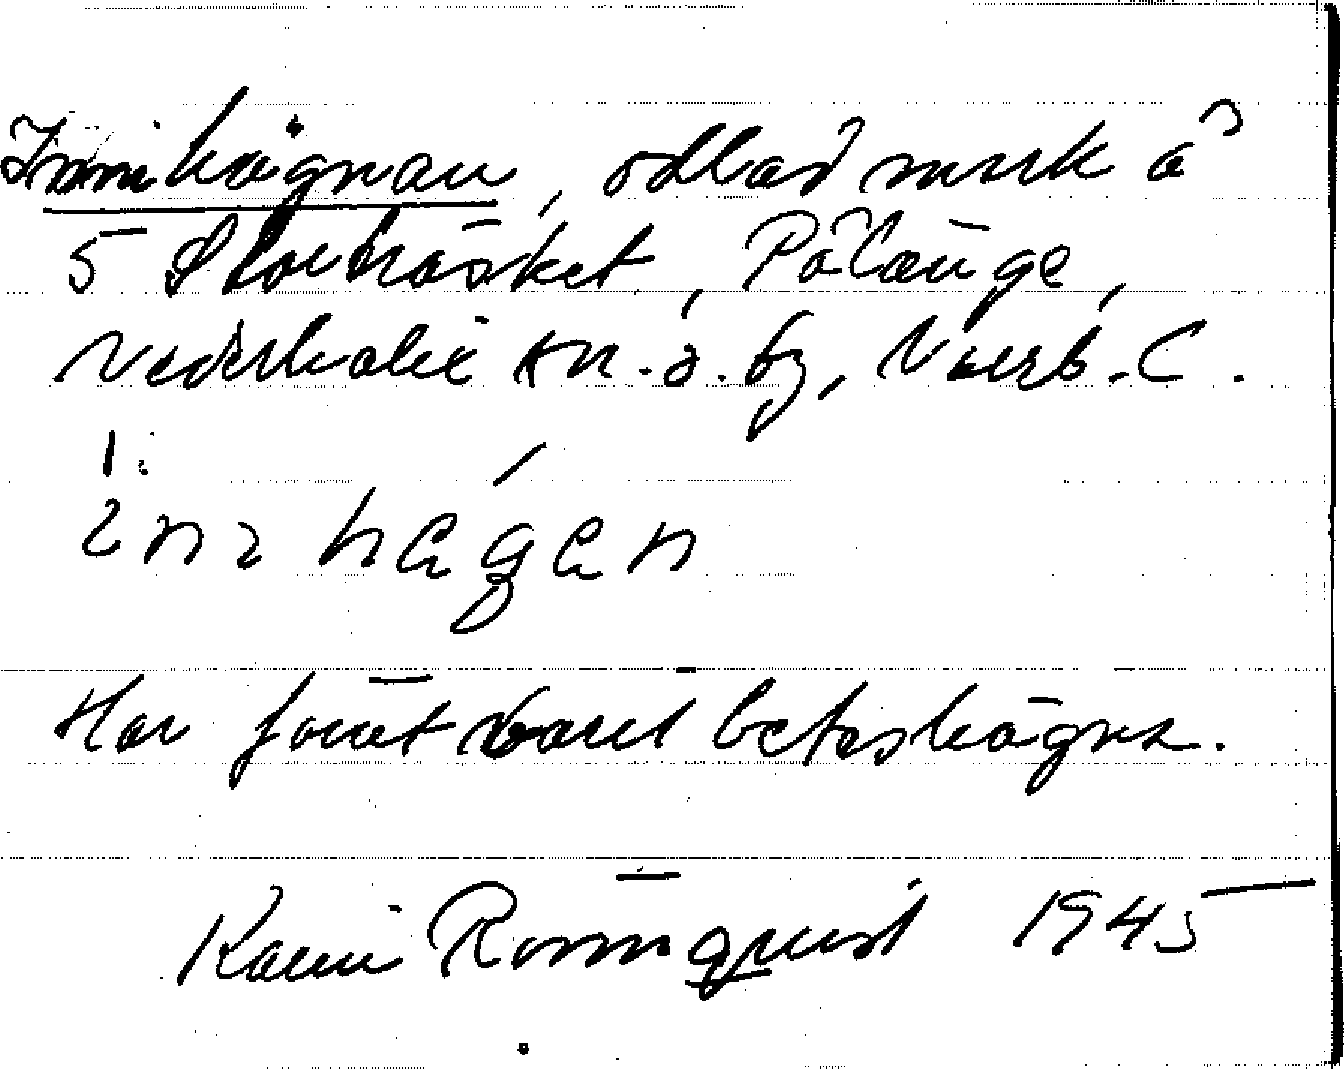 Innihägnan, odlad mark å
5 Storträsket, Pålänge,
Nederkalix sn. o. by, Norrb. l.
1.
inihägan
Har förut varit beteshägna.
Karin Rönnquist 1945